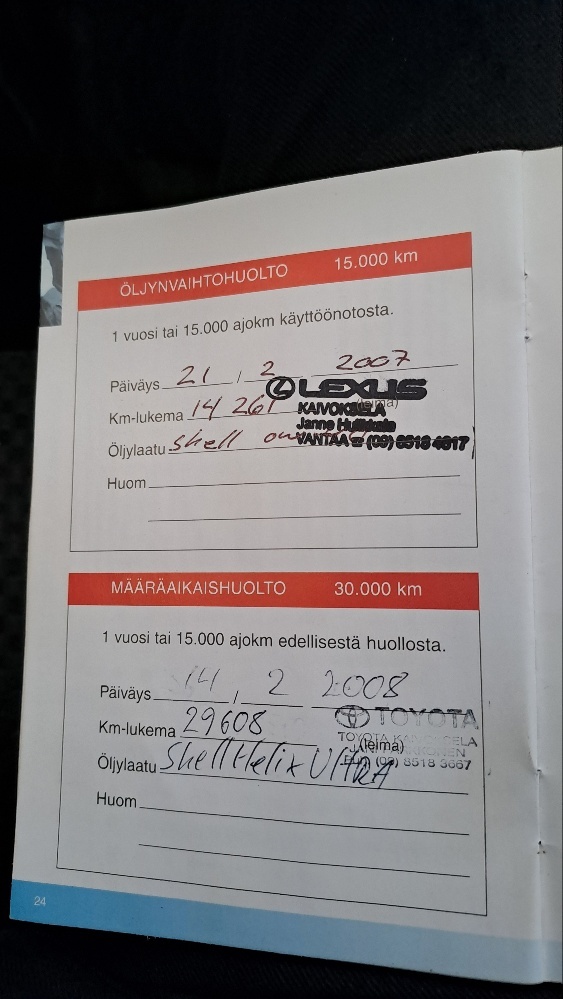 ÖLJYNVAIHTOHUOLTO 15.000 km
1 vuosi tai 15.000 ajokm käyttöönotosta.
Päiväys 21 / 2 2007
LEXUS
Km-lukema 14 261 KAIVOKSELA (leima)
Janne
Öljylaatu shell VANTAA ☎ (09) 8518 4617
Huom
MÄÄRÄAIKAISHUOLTO 30.000 km
1 vuosi tai 15.000 ajokm edellisestä huollosta.
Päiväys 14 / 2 2008
TOYOTA
Km-lukema 29608 TOYOTA KAIVOKSELA
(leima)
Öljylaatu Shell Helix Ultra (09) 8518 3667
Huom
24